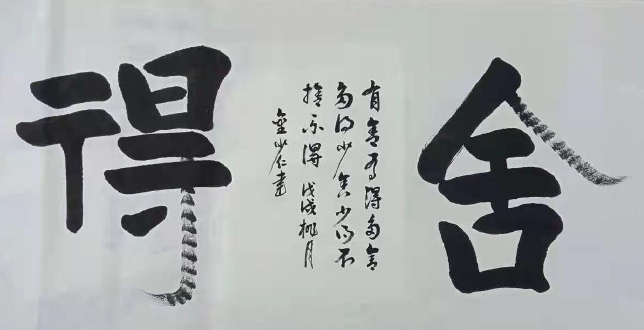 舍
有舍有得多舍
多得少舍少得不
捨不得 戊戌桃月
金少仁書
得